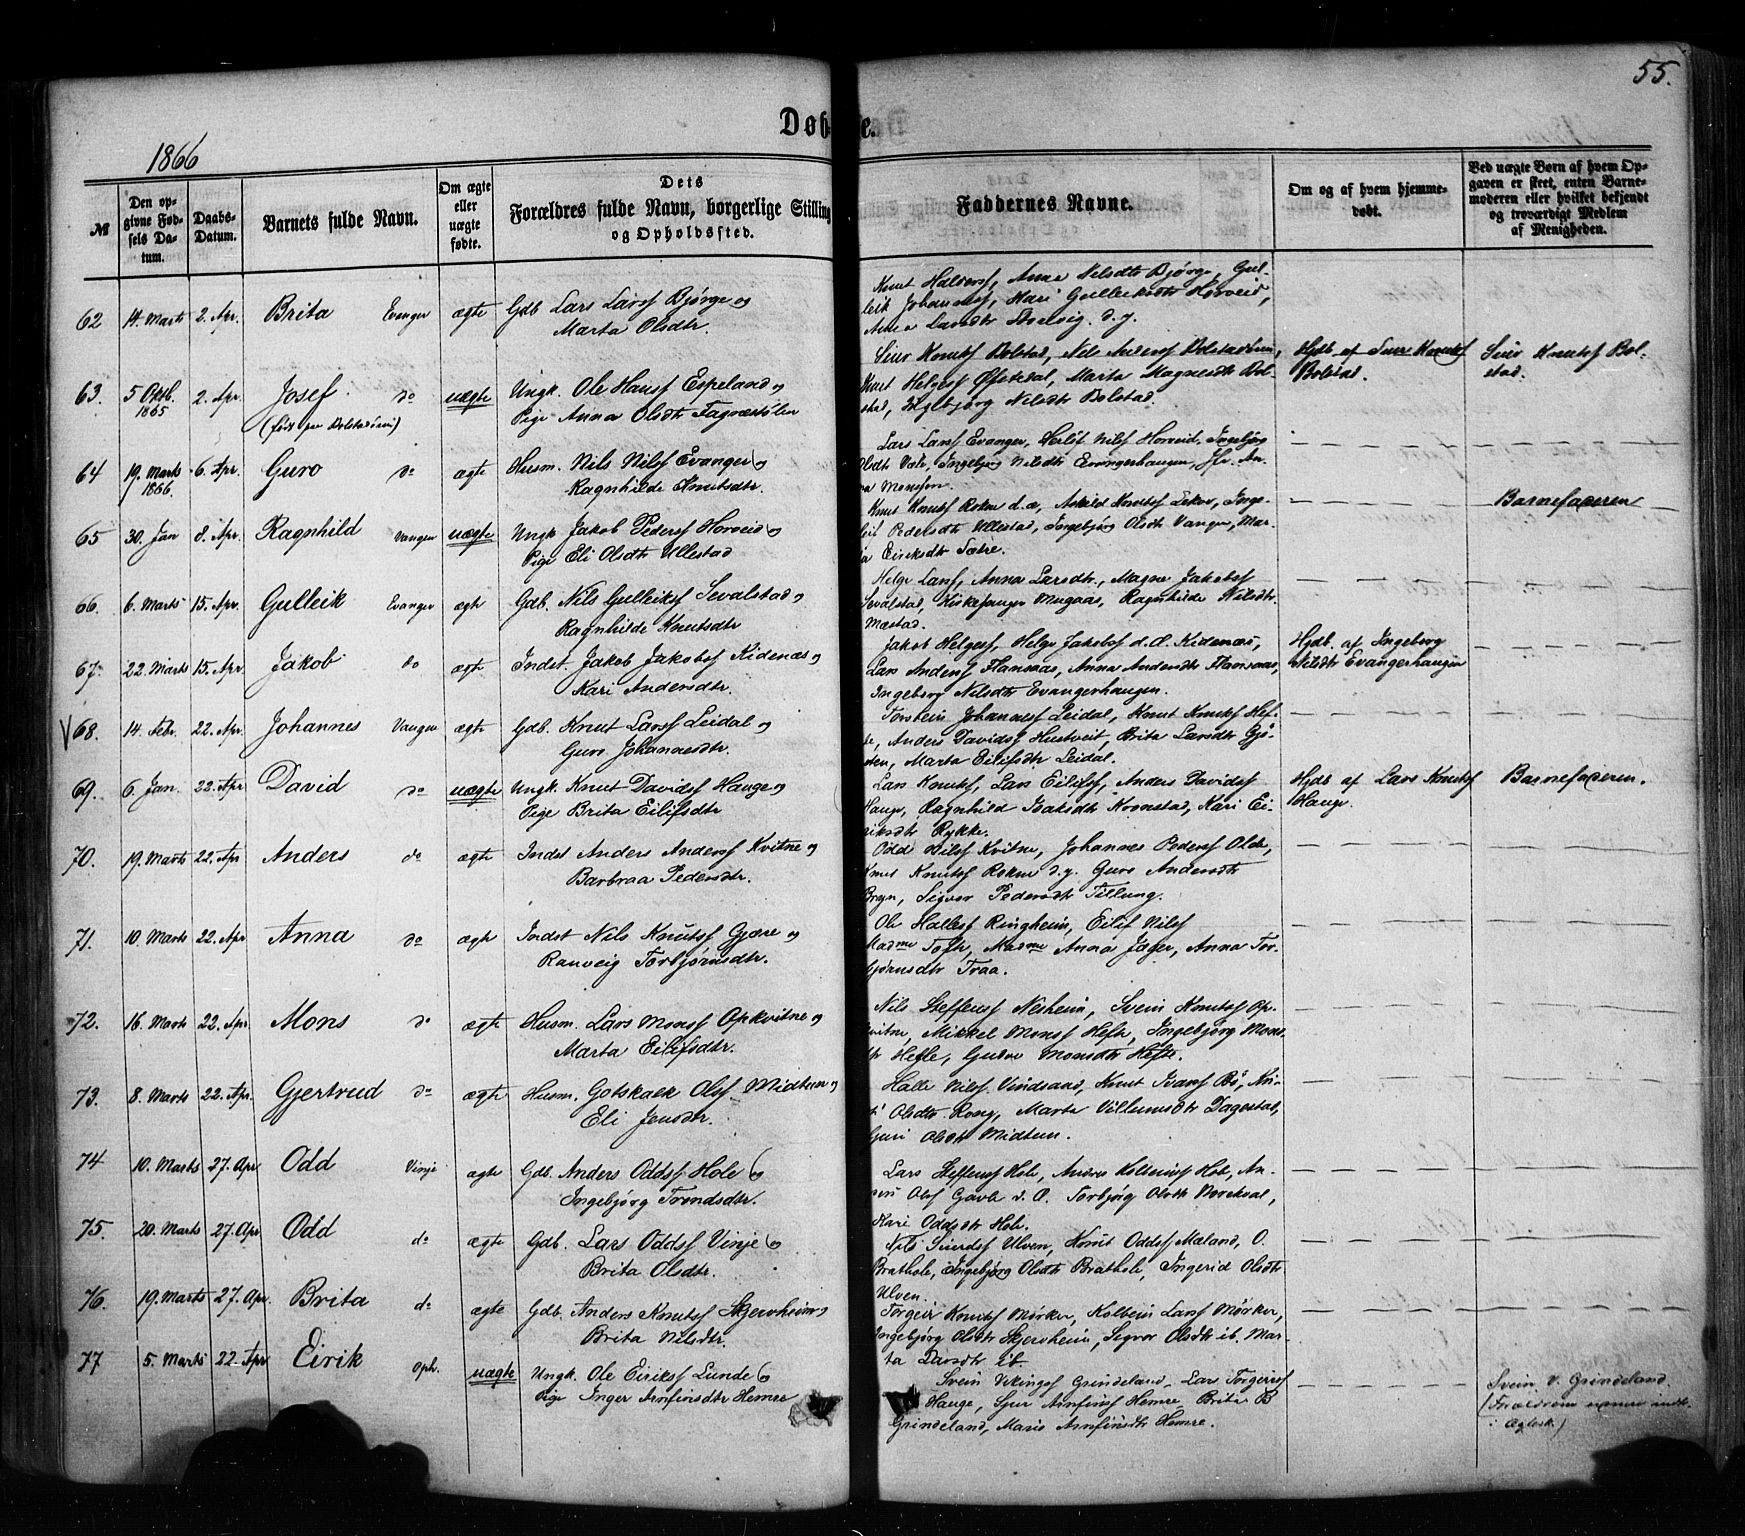 55.
Døbte.
1866
№
Den opgivne Fødsels Datum.
Daabs-Datum.
Barnets fulde Navn.
Om ægte eller uægte fødte.
Dets Forældres fulde Navn, borgerlige Stilling og Opholdssted.
Faddernes Navne.
Om og af hvem hjemmedøbt.
Ved uægte Børn af hvem Opgaven er skeet, enten Barnemoderen eller hvilket bekjendt og troværdigt Medlem af Menigheden.
62 14. Marts 2. Apr. Brita Evanger ægte Gdb. Lars Larss Bjørge og
Marta Olsdtr.
Knut Halverss, Anna Nilsdtr Bjørge, Gul-
leik Johanness, Kari Gulleiksdtr Horveid,
Anna Larsdtr d.y.
63. 5 Oktb. 1865 2. Apr. Josef do uægte Ungk. Ole Hanss Espeland og
(født paa Bolstadøren) Pige Anna Olsdtr
Siur Knutss Bolstad, Nils Anderss Bolstadøren,
Knut Helgess Øfstedal, Marta Magnesdtr Bol-
stad, Ingebjørg Nilsdtr Bolstad.
Hjdb. af Siur Knutss
Bolstad.
Siur Knutss Bol-
stad.
64 19. Marts 1866. 6. Apr. Guro do ægte Husm. Nils Nilss Evanger og
Ragnhilde Knutsdtr.
Lars Larss Evanger, Nils Horveid, Ingebjørg
Olsdtr Ingebjørg Nilsdtr Evangerhaugen, Jfr. An-
na Monsen.
65 30. Jan 8. Apr. Ragnhild Vangen uægte Ungk Jakob Pederss Horveid og
Pige Eli Olsdtr Ullestad
Knut Knutss Rokne d.æ, Askild Knutss Lekve, Inge-
leif Pedersdtr Ullestad, Ingebjørg Olsdtr Vangen, Mar-
ta Eiriksdtr Sætre.
Barnefaderen
66. 6. Marts 15. Apr. Gulleik Evanger ægte Gdb. Nils Gulleikss Sevalstad og
Ragnhilde Knutsdtr
Helge Larss, Anna Larsdtr., Magne Jakobss
Sevalstad, Kirkesanger Mugaas, Ragnhilde Nilsdtr
Mæstad.
67. 22. Marts 15. Apr. Jakob do ægte Indst. Jakob Jakobss Kidenæs og
Kari Andersdtr.
Jakob Helgess, Helge Jakobss d.æ. Kidenæs,
Lars Anderss Flansaas, Anna Andersdtr Flansaas,
Ingeborg Nilsdtr Evangerhaugen.
Hjdb. af Ingeborg
Nilsdtr Evangerhaugen
V 68. 14. Febr. 22. Apr. Johannes Vangen ægte Gdb. Knut Larss Leidal og
Guro Johannesdtr.
Torstein Johanness Leidal, Knut Knutss Hef-
te, Anders Davidss Hustveit, Brita Larsdtr Gjø-
sten, Marta Eilifsdtr Leidal.
69. 6. Jan. 22. Apr David do uægte Ungk. Knut Davidss Hauge og
Pige Brita Eilifsdtr
Lars Knutss, Lars Eilifss, Anders Davidss
Hauge, Ragnhild Isaksdtr Kronstad, Kari Ei-
riksdtr Rykke.
Hjdb af Lars Knutss
Hauge.
Barnefaderen.
70. 19. Marts 22. Apr Anders do ægte Indst Anders Anderss Kvitne og
Barbraa Pedersdtr.
Odd Nilss Kvitne, Johannes Pederss Olde,
Knut Knutss Rokne d.y. Guro Andersdtr
Bryn, Sigvor Pedersdtr Tillung.
71. 10. Marts 22. Apr Anna do ægte Indst Nils Knutss Gjære og
Ranveig Torbjørnsdtr.
Ole Halless Ringheim, Eilif Nilss
Madme Toft, Madme Anna Jager, Anna Tor-
bjørnsdtr Traa.
72. 16. Marts 22. Apr. Mons do ægte Husm. Lars Monss Opkvitne og
Marta Eilifsdtr.
Nils Steffenss Nesheim, Svein Knutss Op-
kvitne, Mikkel Monss Hefte, Ingebjørg Mons-
dtr Hefte, Gudve Monsdtr Hefte.
73. 8. Marts 22. Apr. Gjertrud do ægte Husm. Gotskalk Olss Midtun og
Eli Jensdtr.
Halle Nilss Vindsand, Knut Ivarss Bø, Ka-
ri Olsdtr Rong, Marta Villumsdtr Dagestad,
Guri Olsdtr Midtun.
74 10. Marts 27. Apr Odd Vinje ægte Gdb. Anders Oddss Hole og
Ingebjørg Trondsdtr.
Lars Steffenss Hole, Anders Kolbeinss Hole, An-
Olss Gavle d.æ. Torbjørg Olsdtr
Kari Oddsdtr Hole.
75. 20. Marts 27. Apr Odd do ægte Gdb. Lars Oddss Vinje og
Brita Olsdtr.
Nils Siurdss Ulven, Knut Oddss Maland, O.
Brathole, Ingebjørg Olsdtr Brathole, Ingerid Olsdtr
Ulven.
76. 19. Marts 27. Apr. Brita do ægte Gdb. Anders Knutss Skjervheim og
Brita Nilsdtr.
Torgeir Knutss Mørker, Kolbein Larss Mørker,
Ingebjørg Olsdtr Skjervheim, Sigvor Olsdtr ib. Mar-
ta Larsdtr ib.
77 5. Marts 22. Apr Eirik Oph. uægte Ungk. Ole Eirikss Lunde og
Pige Inger Arnfinsdtr Hemre
Svein Vikingss Grindeland, Lars Torgerss
Hauge, Sjur Arnfinss Hemre, Brita B
Grindeland, Maris Arnfinsdtr Hemre.
Svein V. Grindeland.
(Forældrene senere indtr.
i Ægtesk.)